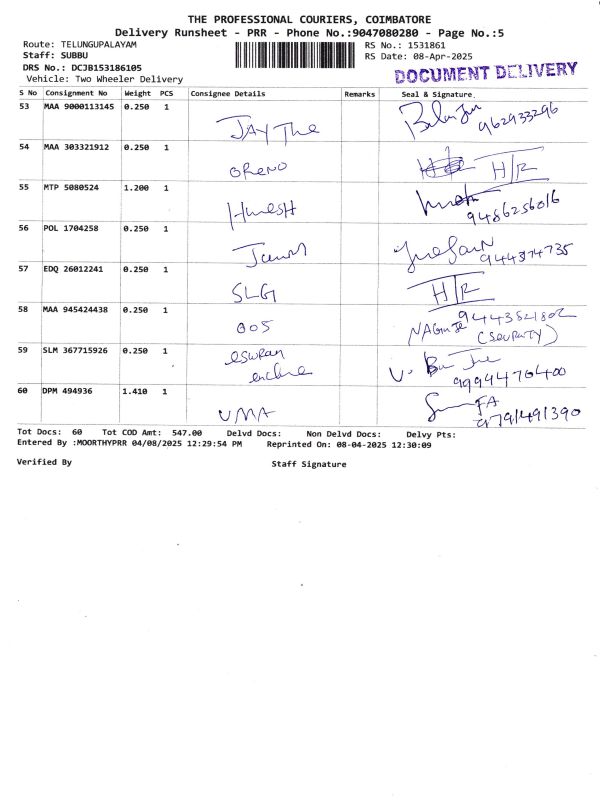 THE PROFESSIONAL COURIERS, COIMBATORE
Delivery Runsheet - PRR - Phone No.:9047080280 - Page No.:5
Route: TELUNGUPALAYAM RS No.: 1531861
Staff: SUBBU RS Date: 08-Apr-2025
DRS No.: DCJB153186105
Vehicle: Two Wheeler Delivery DOCUMENT DELIVERY
S No Consignment No Weight PCS Consignee Details Remarks Seal & Signature
53 MAA 9000113145 0.250 1 JAY The 962933296
54 MAA 303321912 0.250 1 OReNO H/R
55 MTP 5080524 1.200 1 9486256016
56 POL 1704258 0.250 1 944374735
57 EDQ 26012241 0.250 1 SLG H/R
58 MAA 945424438 0.250 1 005
59 SLM 367715926 0.250 1 eswran 9994470400
60 DPM 494936 1.410 1 UMA 9791491390
Tot Docs: 60 Tot COD Amt: 547.00 Delvd Docs: Non Delvd Docs: Delvy Pts:
Entered By :MOORTHYPRR 04/08/2025 12:29:54 PM Reprinted On: 08-04-2025 12:30:09
Verified By Staff Signature